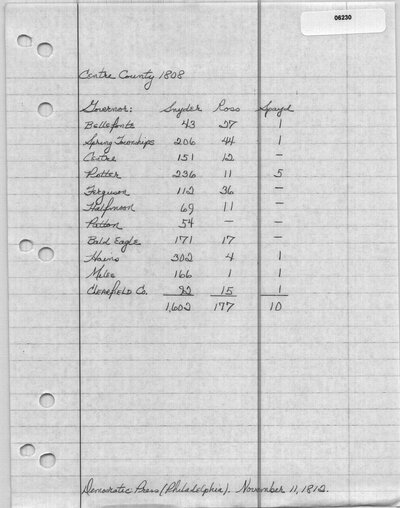 06230
Centre County 1808
Governor: Snyder Ross Spayd
Bellefonte 43 27 1
Spring Townships 206 44 1
Centre 151 12 –
Potter 236 11 5
Ferguson 112 36 –
Halfmoon 69 11 –
Patton 54 – –
Bald Eagle 171 17 –
Hains 302 4 1
Miles 166 1 1
Clearfield Co. 92 15 1
1,602 177 10
Democratic Press (Philadelphia). November 11, 1812.